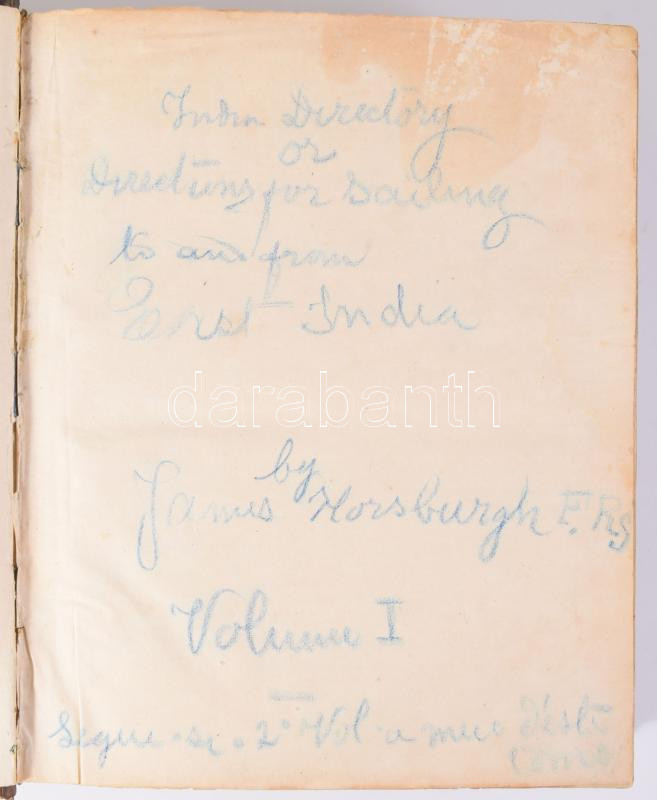 India Directory
or
Directions for Sailing
to and from
East India
darabanth
by
James Horsburgh F.R.S
Volume I
Segue-se. 2º Vol. a meio d'este